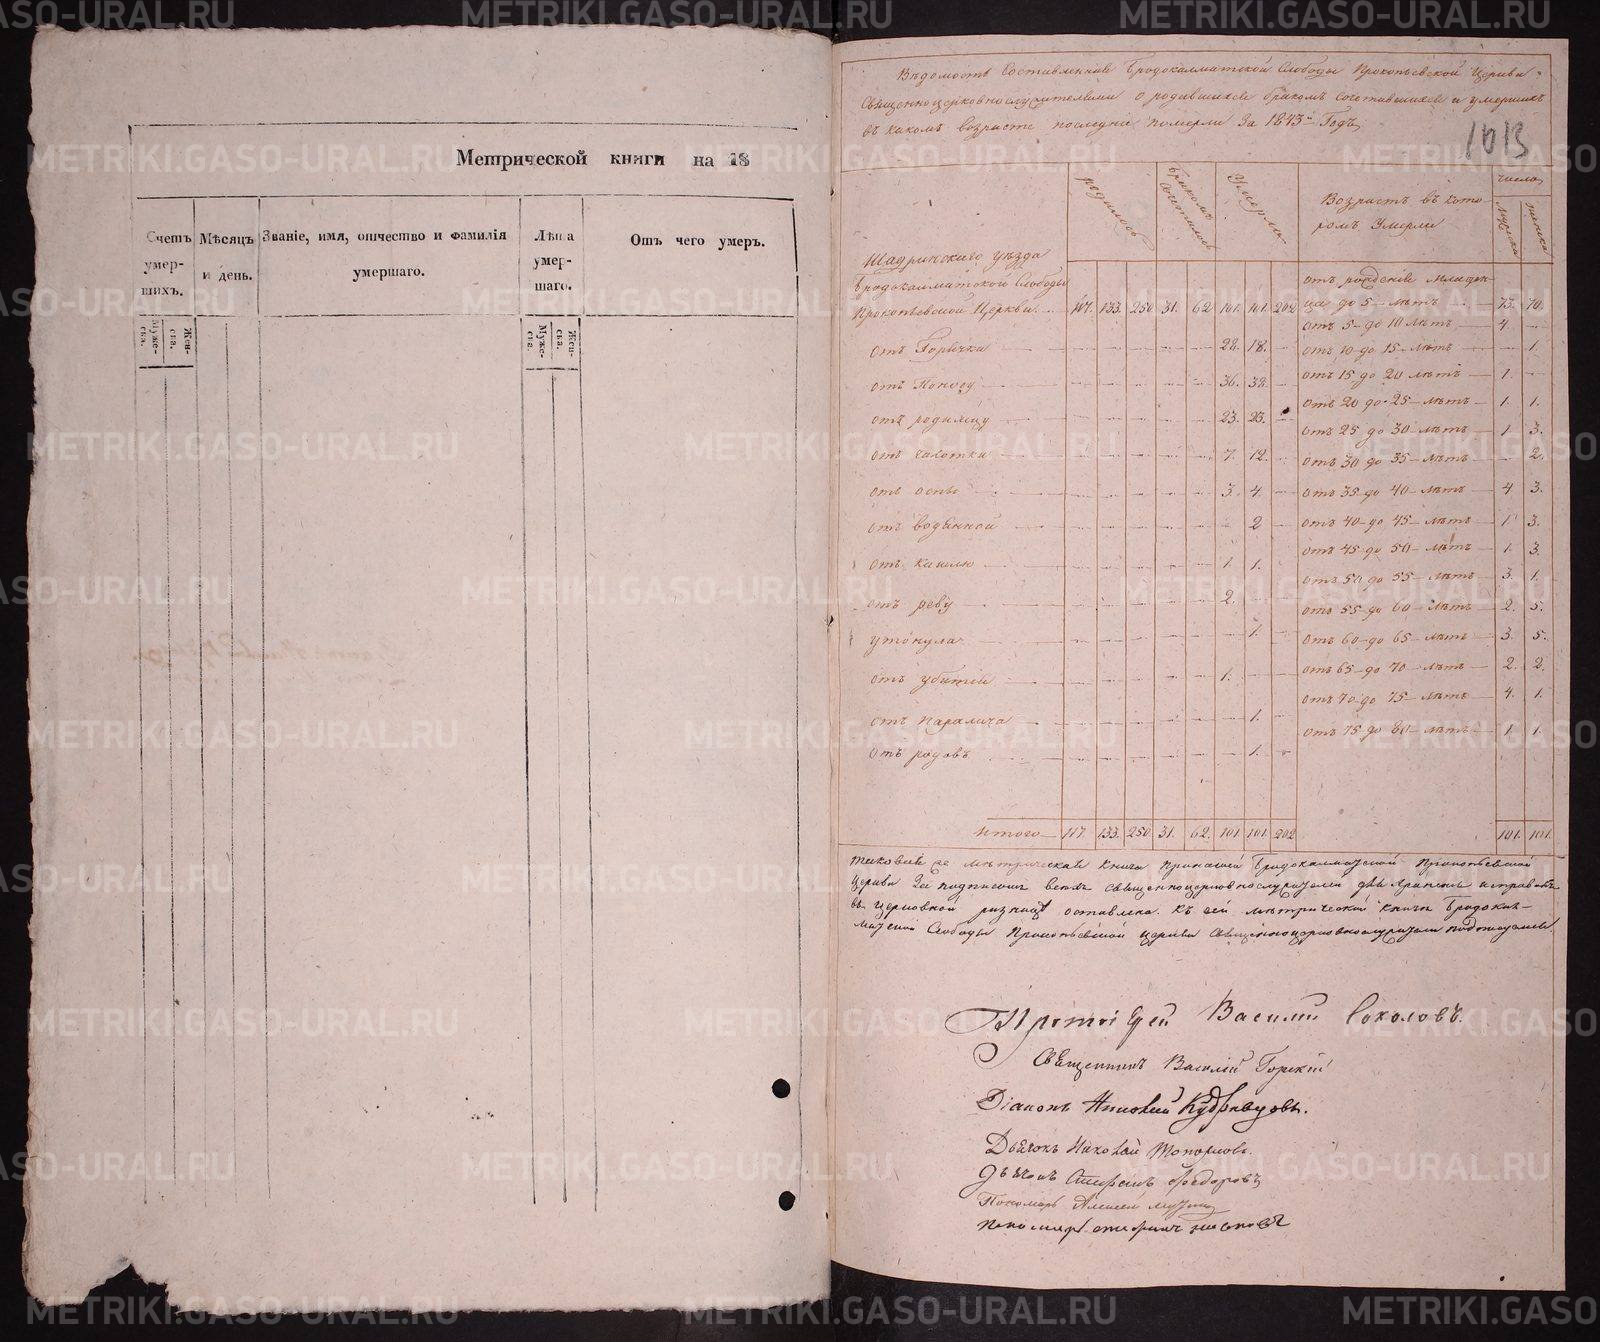 Метрической книги на 18
Счетъ умер-
шихъ.
Муже-
ска.
Жен-
ска.
Мѣсяцъ
и день.
Званіе, имя, отчество и фамилія
умершаго.
Лѣта
умер-
шаго.
Муже-
ска.
Жен-
ска.
Отъ чего умеръ.
Вѣдомость составленная Бродокалматской Слободы Прокопьевской Церкви
Священноцерковнослужителями о родившихся бракомъ сочетавшихся и умершихъ
въ какомъ возрастѣ последніе померли За 1843й Годъ
1013
родилось
бракомъ сочеталось
Умерли
Возрастъ въ кото-
ромъ Умерли
число
мужска
женска
Шадринского уѣзда
Бродокалматской Слободы
Прокопьевской Церкви 117. 133. 250 31. 62 101. 101. 202
отъ Горячки 28. 18.
отъ Поносу 36. 38.
отъ родимцу 23. 23.
отъ чахотки 7. 12.
отъ оспы 3. 4.
отъ водяной 2
отъ кашлю 1. 1.
отъ реву 2.
утонула 1.
отъ убитія 1.
отъ Паралича 1.
отъ родовъ 1.
Итого 117. 133. 250 31. 62. 101. 101. 202
отъ рожденія младен-
ца до 5 лѣтъ 73. 70.
отъ 5 до 10 лѣтъ 4.
отъ 10 до 15 лѣтъ 1.
отъ 15 до 20 лѣтъ 1.
отъ 20 до 25 лѣтъ 1. 1.
отъ 25 до 30 лѣтъ 1. 3.
отъ 30 до 35 лѣтъ 2.
отъ 35 до 40 лѣтъ 4 3.
отъ 40 до 45 лѣтъ 1 3.
отъ 45 до 50 лѣтъ 1. 3.
отъ 50 до 55 лѣтъ 3. 1.
отъ 55 до 60 лѣтъ 2. 5.
отъ 60 до 65 лѣтъ 3. 5.
отъ 65 до 70 лѣтъ 2. 2.
отъ 70 до 75 лѣтъ 4. 1.
отъ 75 до 80 лѣтъ 1. 1.
101. 101.
таковая же метрическая книга при нашей Бродокалматской Прокопьевской
Церкви За подписомъ всехъ священноцерковнослужителей для храненія
въ церковной ризницѣ оставлена. Къ сей метрической книги Бродокал-
матской Слободы Прокопьевской церкви Священноцерковнослужители подписуемся
Протоіерей Василий Соколовъ.
Священникъ Василій Горскій
Діаконъ Николай Кудрявцовъ.
Дьячокъ Николай Топорковъ.
Дьячокъ Стефанъ Федоровъ
Пономарь Алексей
Пономарь
METRIKI.GASO-URAL.RU